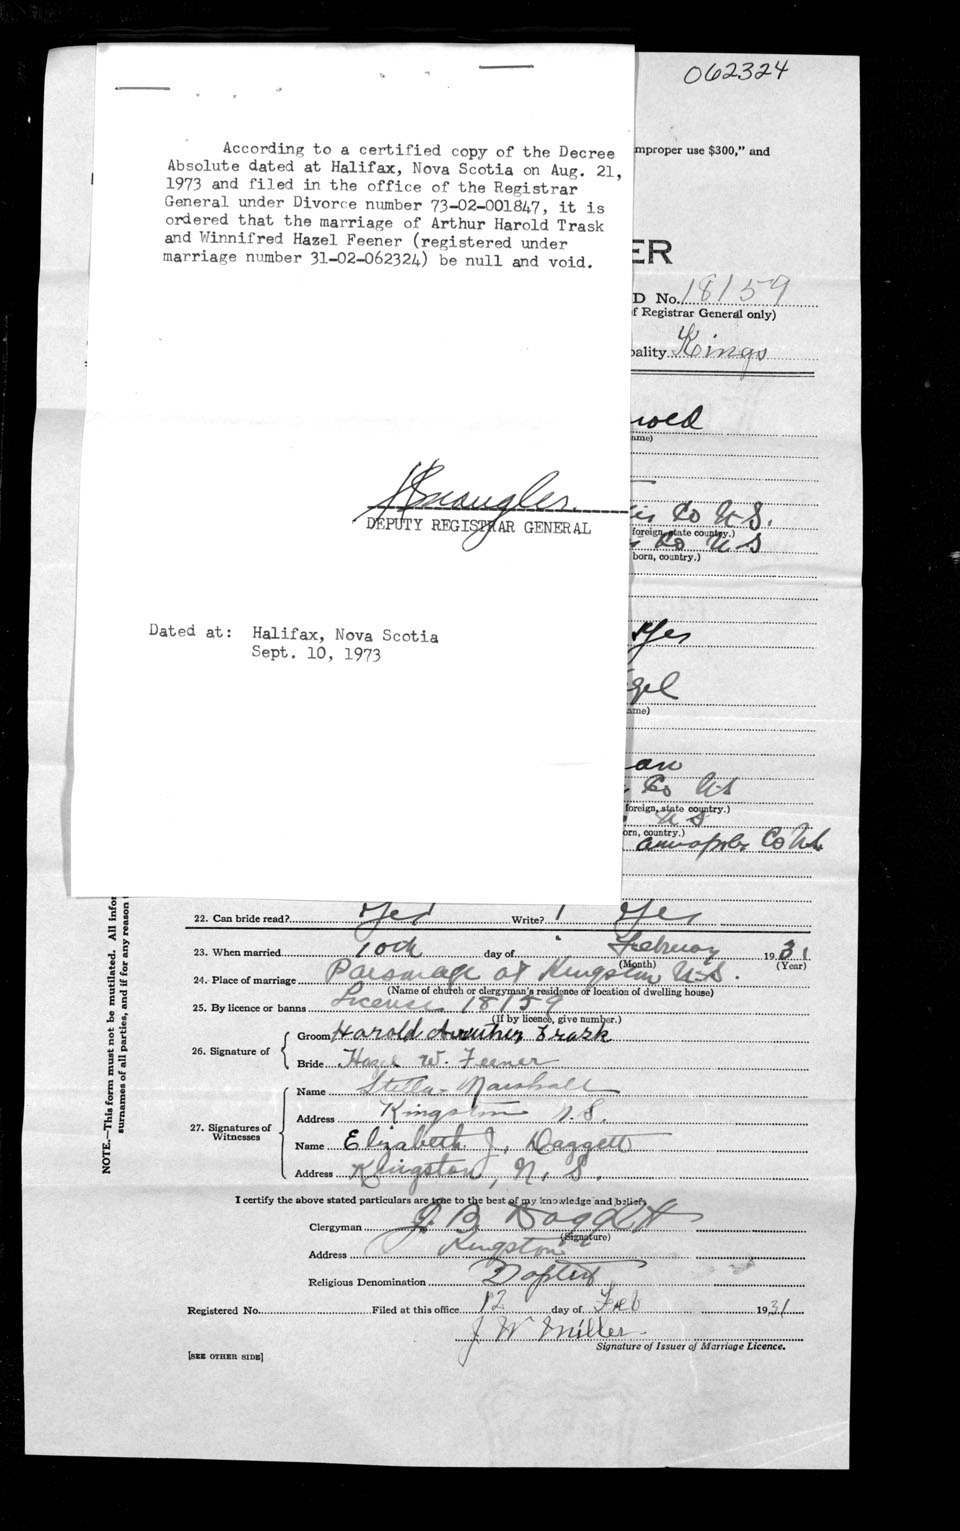 062324
According to a certified copy of the Decree
Absolute dated at Halifax, Nova Scotia on Aug. 21,
1973 and filed in the office of the Registrar
General under Divorce number 73-02-001847, it is
ordered that the marriage of Arthur Harold Trask
and Winnifred Hazel Feener (registered under
marriage number 31-02-062324) be null and void.
DEPUTY REGISTRAR GENERAL
Dated at: Halifax, Nova Scotia
Sept. 10, 1973
mproper use $300," and
ER
D No. 18159
f Registrar General only)
pality Kings
rold
ame)
Co N.S.
foreign, state country.)
Co N S
born, country.)
Yes
ame)
Co N S
foreign, state country.)
N S
orn, country.)
Annapolis Co N.S.
NOTE.—This form must not be mutilated. All infor
surnames of all parties, and if for any reason
22. Can bride read? Yes Write? Yes
23. When married 10th day of February 1931
(Month) (Year)
24. Place of marriage Parsonage at Kingston N.S.
(Name of church or clergyman's residence or location of dwelling house)
25. By licence or banns License 18159
(If by licence, give number.)
26. Signature of Groom Harold Arthur Trask
Bride Hazel W. Feener
27. Signatures of Witnesses
Name Stella Marshall
Address Kingston N.S.
Name Elizabeth J. Daggett
Address Kingston, N. S.
I certify the above stated particulars are true to the best of my knowledge and belief.
Clergyman J. B. Daggett
(Signature)
Address Kingston
Religious Denomination Baptist
Registered No. Filed at this office 12 day of Feb 1931
J W Miller
Signature of Issuer of Marriage Licence.
[SEE OTHER SIDE]